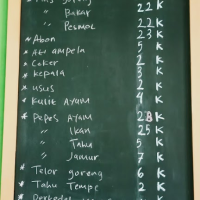 " goreng 22 K
" Bakar 22 K
" Pesmol 23 K
* Abon 5 K
* Ati ampela 2 K
* Ceker 3 K
* Kepala 2 K
* usus 4 K
* Kulit Ayam
* Pepes Ayam 28 K
" Ikan 25 K
" Tahu 5 K
" Jamur 7 K
* Telor goreng 6 K
* Tahu Tempe 2 K
* Perkedel K